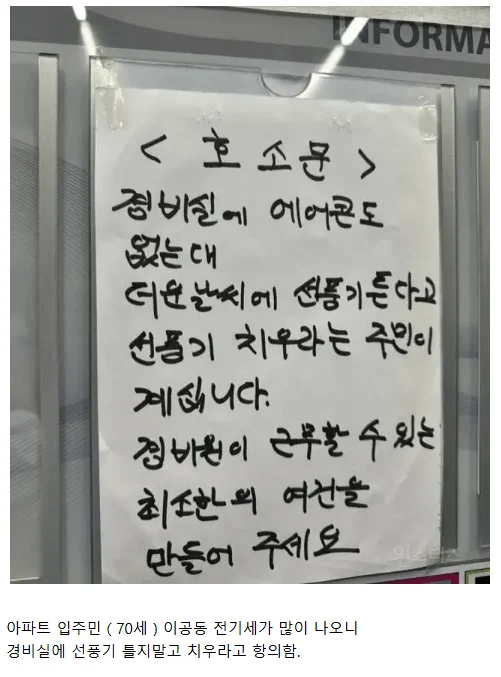 INFORMA
< 호소문 >
경비실에 에어콘도
없는대
더운날씨에 선풍기튼다고
선풍기 치우라는 주민이
계십니다.
경비원이 근무할 수 있는
최소한의 여건을
만들어 주세요
아파트 입주민 ( 70세 ) 이공동 전기세가 많이 나오니
경비실에 선풍기 틀지말고 치우라고 항의함.